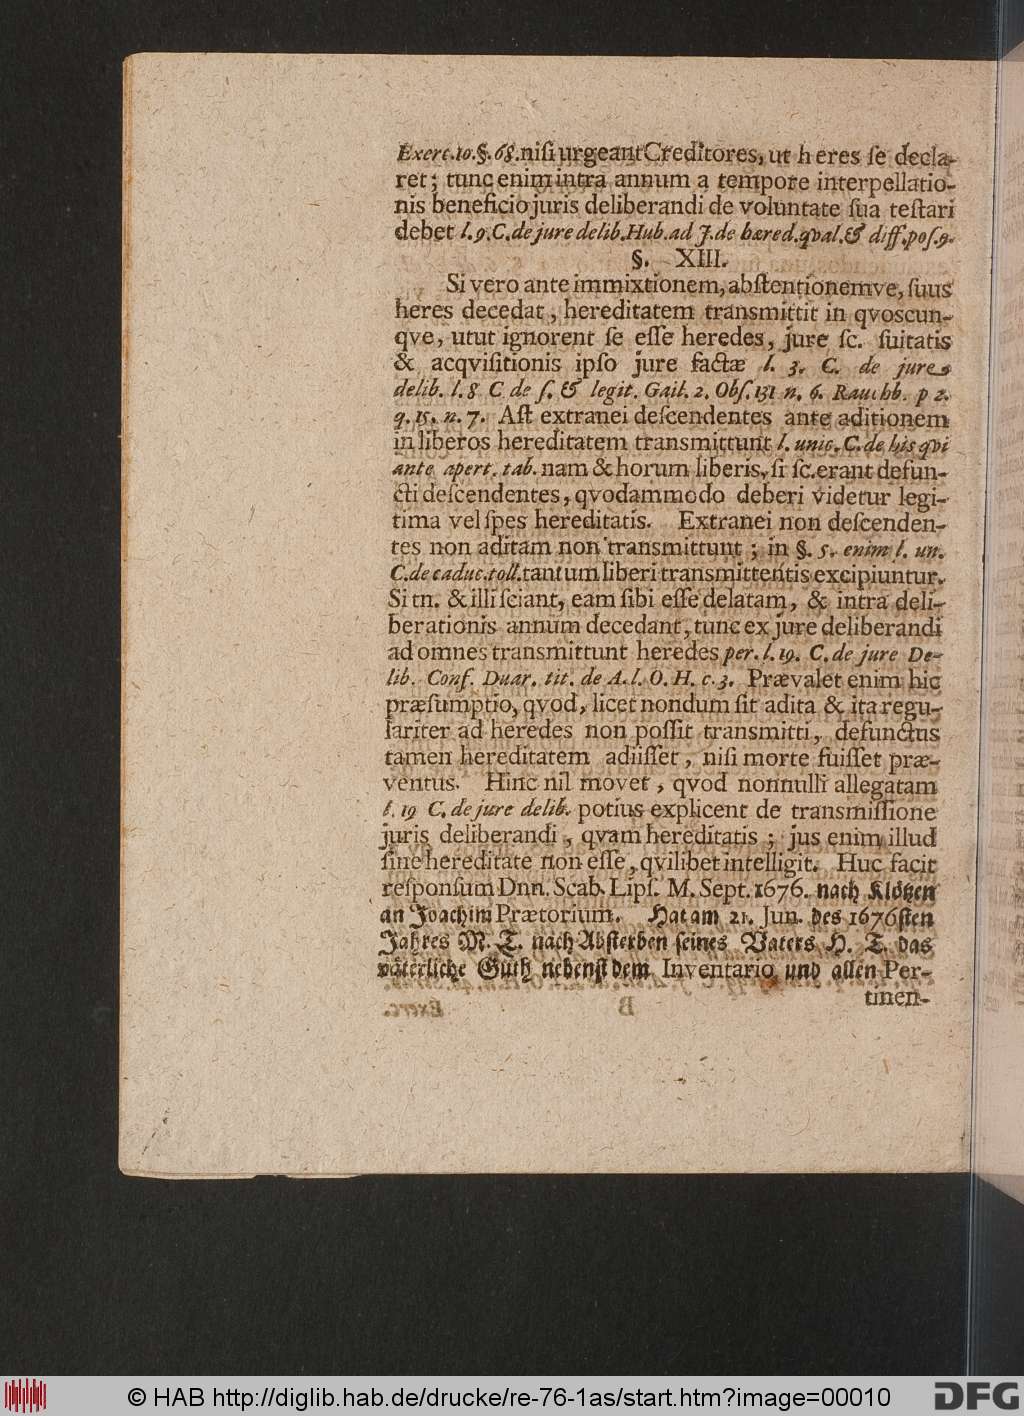 Exerc. 10. §. 68. niſi urgeant Creditores, ut heres ſe decla-
ret; tunc enim intra annum a tempore interpellatio-
nis beneficio juris deliberandi de voluntate ſua teſtari
debet l. 9. C. de jure delib. Hub. ad J. de hæred. qval. & diff. poſ. 9.
§. XIII.
Si vero ante immixtionem, abſtentionemve, ſuus
heres decedat, hereditatem transmittit in qvoscun-
qve, utut ignorent ſe eſſe heredes, jure ſc. ſuitatis
& acqviſitionis ipſo jure factæ l. 3. C. de jure
delib. l. 8 C de ſ. & legit. Gail. 2. Obſ. 131 n. 6. Rauchb. p 2.
q. 15. n. 7. Aſt extranei deſcendentes ante aditionem
in liberos hereditatem transmittunt l. unic. C. de his qvi
ante apert. tab. nam & horum liberis, ſi ſc. erant defun-
cti deſcendentes, qvodammodo deberi videtur legi-
tima vel ſpes hereditatis. Extranei non deſcenden-
tes non aditam non transmittunt; in §. 5. enim l. un.
C. de caduc. toll. tantum liberi transmittentis excipiuntur.
Si tn. & illi ſciant, eam ſibi eſſe delatam, & intra deli-
berationis annum decedant, tunc ex jure deliberandi
ad omnes transmittunt heredes per. l. 19. C. de jure De-
lib. Conf. Duar. tit. de A. l. O. H. c. 3. Prævalet enim hic
præſumptio, qvod, licet nondum ſit adita & ita regu-
lariter ad heredes non poſſit transmitti, defunctus
tamen hereditatem adiiſſet, niſi morte fuiſſet præ-
ventus. Hinc nil movet, qvod nonnulli allegatam
l. 19 C. de jure delib. potius explicent de transmiſſione
juris deliberandi, qvam hereditatis; jus enim illud
ſine hereditate non eſſe, qvilibet intelligit. Huc facit
reſponſum Dnn. Scab. Lipſ. M. Sept. 1676. nach Klötzen
an Joachim Prætorium. Hat am 21. Jun. des 1676ſten
Jahres M. T. nach Abſterben ſeines Vaters H. T. das
väterliche Guth nebenſt dem Inventario und allen Per-
tinen-
© HAB http://diglib.hab.de/drucke/re-76-1as/start.htm?image=00010
DFG